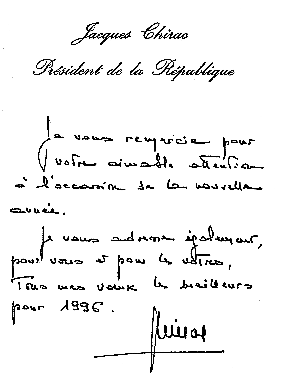 Jacques Chirac
Président de la République
Je vous remercie pour
votre aimable attention
à l'occasion de la nouvelle
année.
Je vous adresse également,
pour vous et pour les vôtres,
Tous mes vœux les meilleurs
pour 1996.